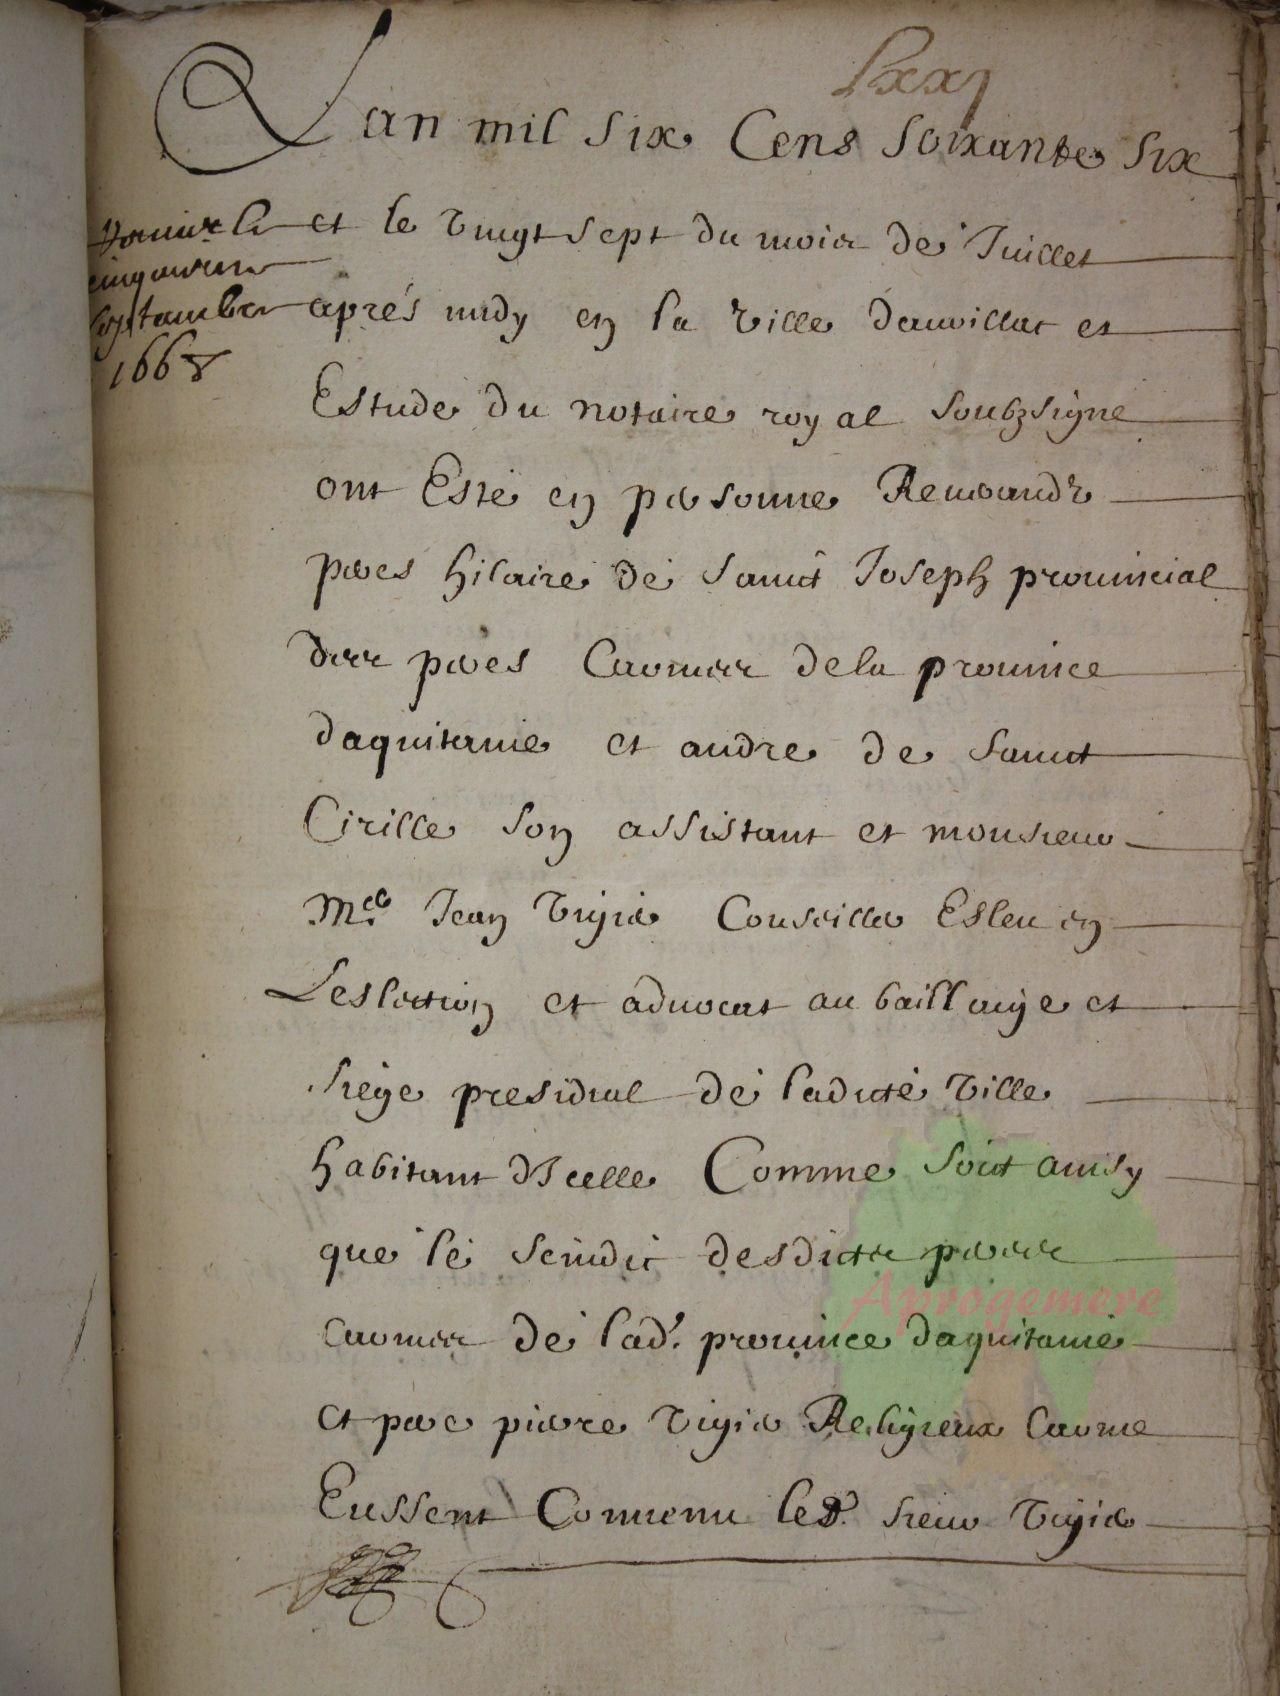 Lxxj
Lan mil six Cens soixante six
et le vingt sept du mois de Juillet
après midy en la ville daurillac et
Estude du notaire royal soubzsigne
ont Esté en personne Reverandz
peres hilaire de sainct Joseph provincial
des peres Carmes de la province
daquitanie et andre de sainct
Cirille son assistant et monsieur
Me Jean vigier Conseiller Esleu en
Leslection et advocat au baillaige et
siege presidial de ladicte ville
habitant dIcelle Comme soict ainsy
que le scindic desdictz peres
carmes de lad. province daquitanie
et pere pierre vigier Religieux Carme
Eussent Convenu led. sieur vigier
cinq
septambre
1668
Aprogemere